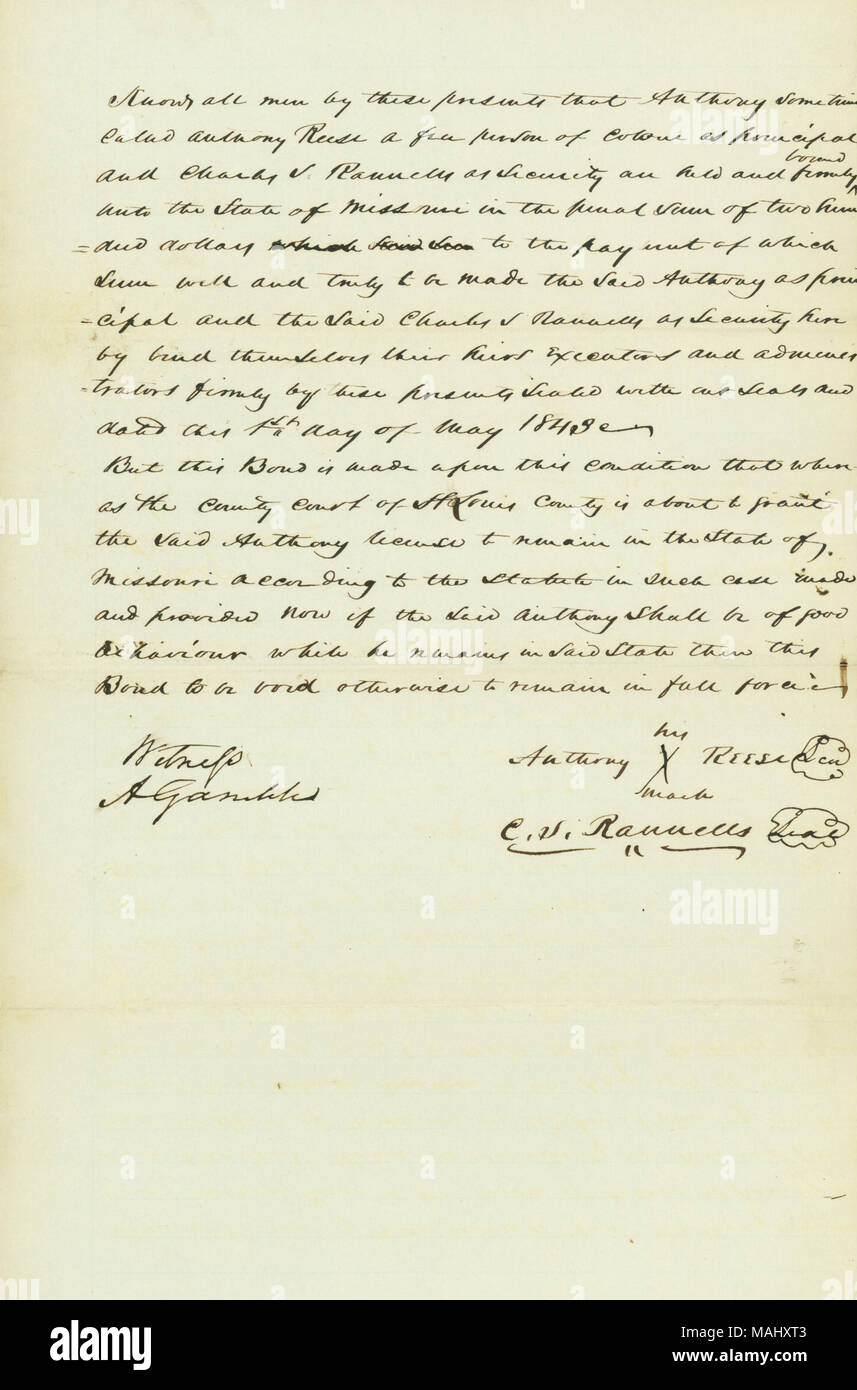 Know all men by these presents that Anthony Sometim
Called Anthony Reese a free person of Colour as principal
and Charles S. Rannells as Security are held and bound firmly
unto the State of Missouri in the penal Sum of two hun
=dred dollars which said Sum to the pay ment of which
Sum well and truly to be made the Said Anthony as prin
=cipal and the Said Charles S Rannells as Security here
by bind themselves their heirs Executors and adminis
=trators firmly by these presents Sealed with our Seals and
dated this 1st day of May 1843
But this Bond is made upon this condition that where
as the County Court of St Louis County is about to grant
the Said Anthony license to remain in the State of
Missouri according to the Statute in such case made
and provided Now if the Said Anthony Shall be of good
behaviour while he remains in Said State then this
Bond to be void otherwise to remain in full force
Witness
A Gamble
his
Anthony X Reese Seal
mark
C. S. Rannells Seal
alamy
Image ID: MAHXT3
www.alamy.com